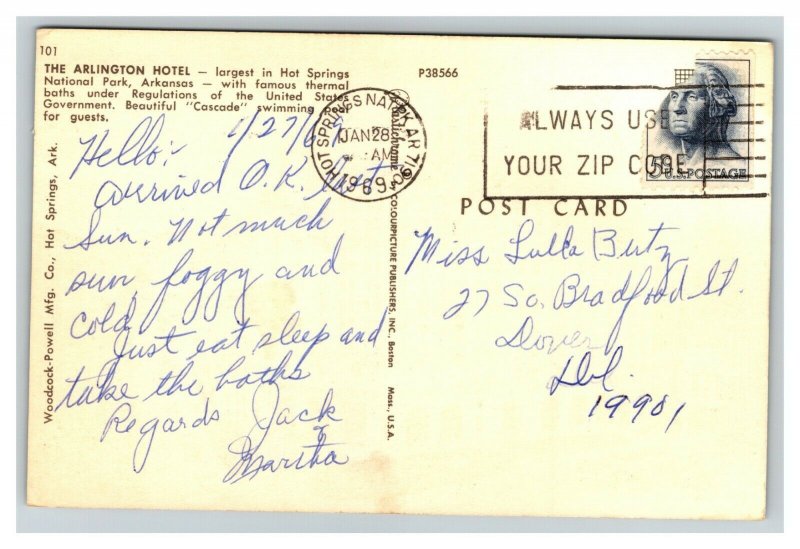 101
THE ARLINGTON HOTEL — largest in Hot Springs
National Park, Arkansas — with famous thermal
baths under Regulations of the United States
Government. Beautiful "Cascade" swimming pool
for guests.
P38566
HOT SPRINGS NAT. PK. AR
JAN 28
AM
1969
ALWAYS USE
YOUR ZIP CODE
5¢ U.S. POSTAGE
POST CARD
1/27/69
Hello:
arrived O.K. last
Sun. Not much
sun, foggy and
cold,
just eat sleep and
take the baths
Regards Jack
&
Martha
Miss Lulla Butz
27 So. Bradford St.
Dover
Del.
19901
Woodcock-Powell Mfg. Co., Hot Springs, Ark.
Plastichrome
COLOURPICTURE PUBLISHERS, INC., Boston Mass., U.S.A.